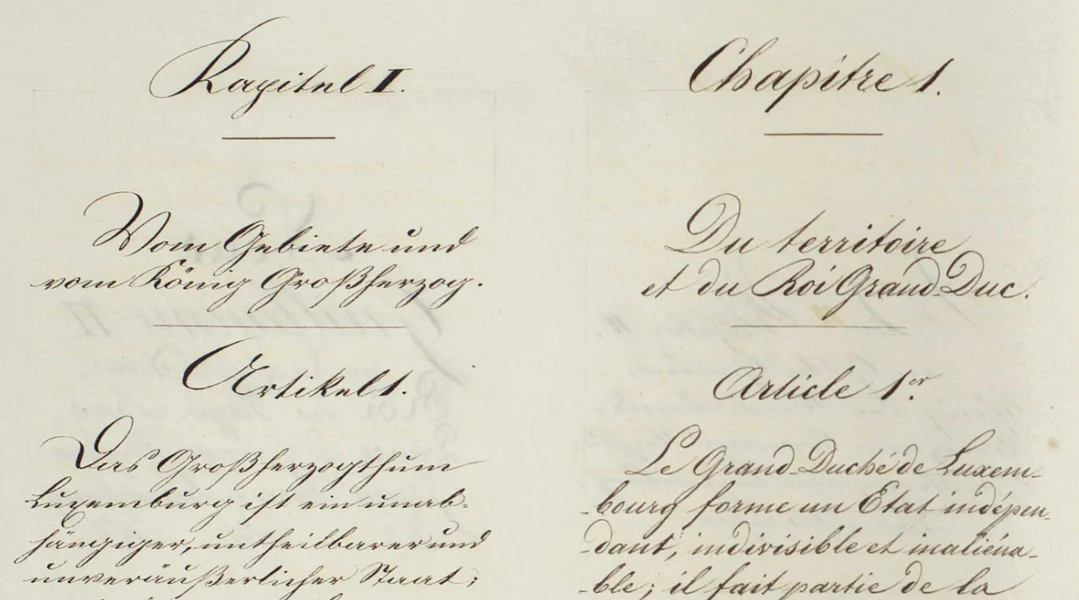 Kapitel I.
Vom Gebiete und
vom König Großherzog.
Artikel 1.
Das Großherzogthum
Luxemburg ist ein unab-
hängiger, untheilbarer und
unveräußerlicher Staat;
Chapitre 1.
Du territoire
et du Roi Grand-Duc.
Article 1er.
Le Grand-Duché de Luxem-
-bourg forme un Etat indépen-
-dant, indivisible et inaliéna-
-ble; il fait partie de la